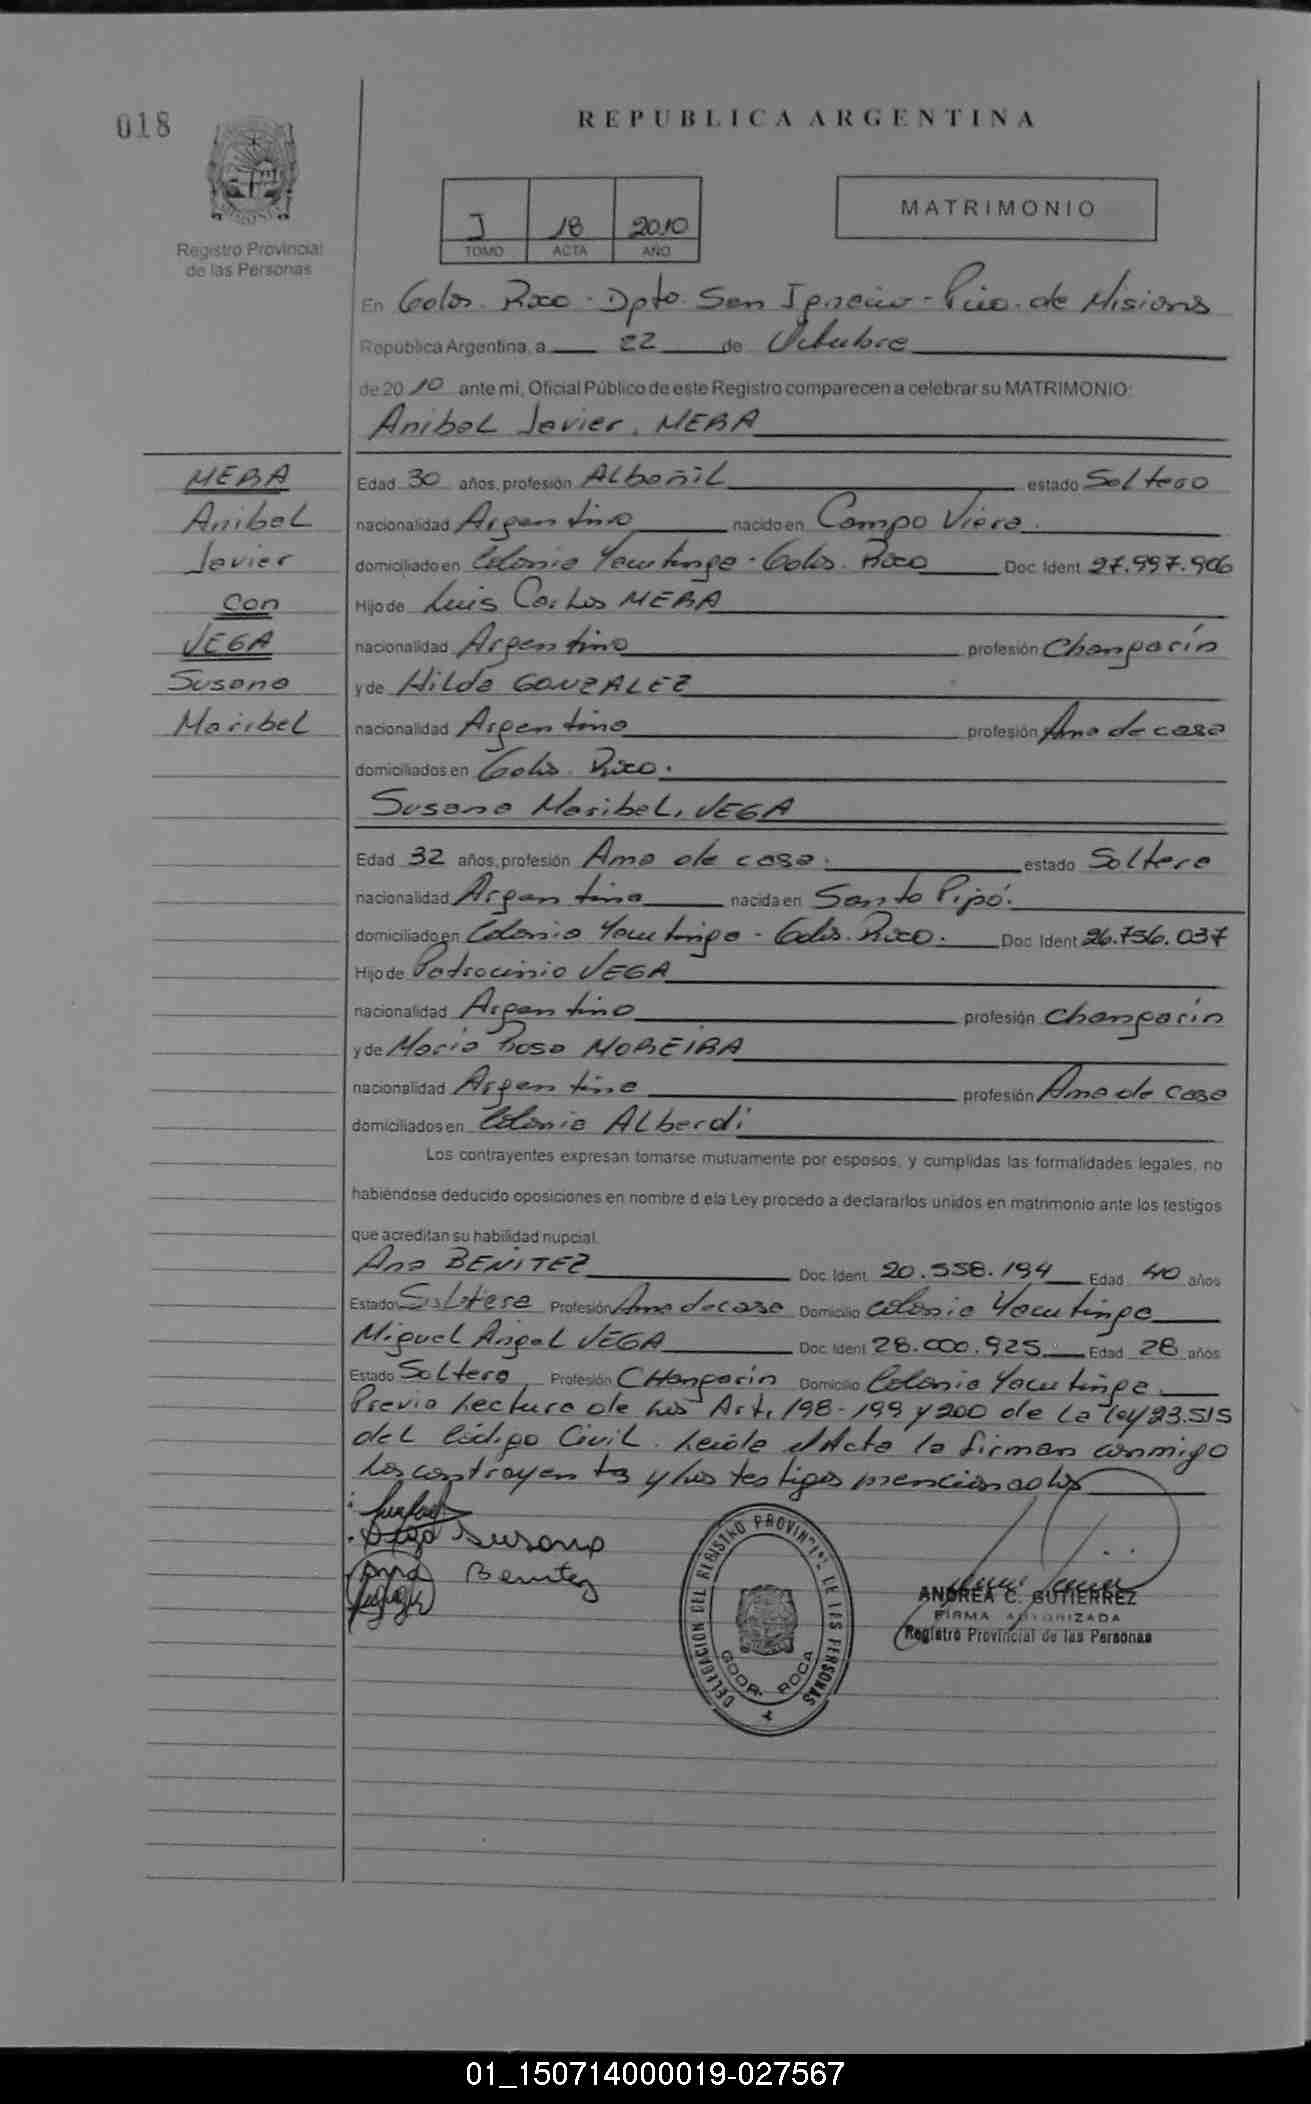 018
REPUBLICA ARGENTINA
Registro Provincial
de las Personas
I 18 2010
TOMO ACTA AÑO
MATRIMONIO
En Gdor. Roca - Dpto. San Ignacio - Pcia. de Misiones
República Argentina, a 22 de Octubre
de 2010 ante mi, Oficial Público de este Registro comparecen a celebrar su MATRIMONIO:
Anibal Javier, MERA
MERA
Anibal
Javier
Con
VEGA
Susana
Maribel
Edad 30 años, profesión Albañil estado Soltero
nacionalidad Argentino nacido en Campo Viera.
domiciliado en Colonia Yacutinga - Gdor. Roca Doc. Ident. 27.997.906
Hijo de Luis Carlos MERA
nacionalidad Argentino profesión Changarín
y de Hilda GONZALEZ
nacionalidad Argentina profesión Ama de casa
domiciliados en Gdor. Roca.
Susana Maribel, VEGA
Edad 32 años, profesión Ama de casa. estado Soltera
nacionalidad Argentina nacida en Santo Pipó.
domiciliado en Colonia Yacutinga - Gdor. Roca. Doc. Ident. 26.756.037
Hijo de Patrocinio VEGA
nacionalidad Argentino profesión Changarín
y de María Rosa MOREIRA
nacionalidad Argentina profesión Ama de casa
domiciliados en Colonia Alberdi
Los contrayentes expresan tomarse mutuamente por esposos, y cumplidas las formalidades legales, no
habiéndose deducido oposiciones en nombre d ela Ley procedo a declararlos unidos en matrimonio ante los testigos
que acreditan su habilidad nupcial.
Ana BENITEZ Doc. Ident. 20.558.194 Edad 40 años
Estado Soltera Profesión Ama de casa Domicilio Colonia Yacutinga
Miguel Angel VEGA Doc. Ident. 28.000.925 Edad 28 años
Estado Soltero Profesión CHangarín Domicilio Colonia Yacutinga.
Previa lectura de los Art. 198-199 y 200 de la ley 23.515
del Código Civil. Leída el Acta la firman conmigo
los contrayentes y los testigos mencionados
Vega Susana
Ana Benitez
DELEGACION DEL REGISTRO PROVINCIAL DE LAS PERSONAS
GDOR. ROCA
ANDREA C. GUTIERREZ
FIRMA AUTORIZADA
Registro Provincial de las Personas
01_150714000019-027567